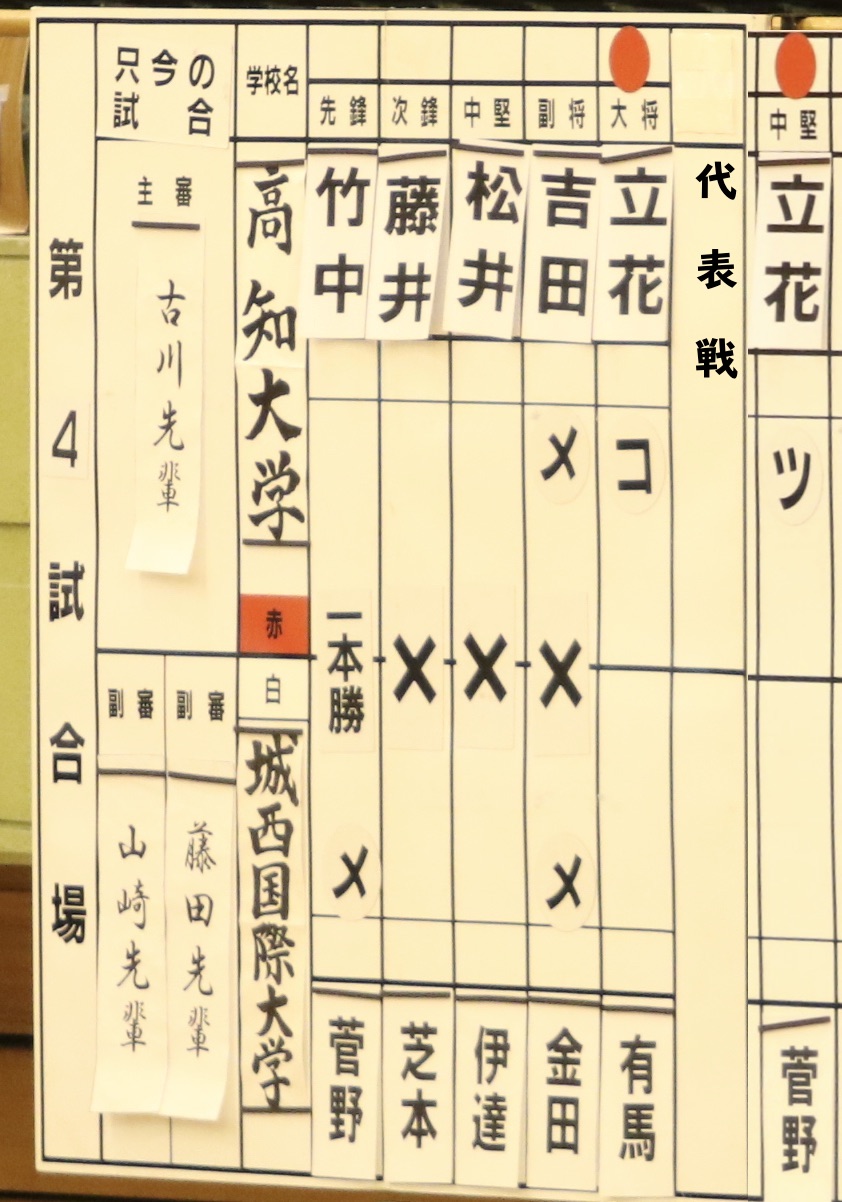 第4試合場
只今の
試合
主審
古川先輩
副審
副審
山崎先輩
藤田先輩
学校名
高知大学
赤
白
城西国際大学
先鋒
竹中
一本勝
メ
菅野
次鋒
藤井
×
芝本
中堅
松井
×
伊達
副将
吉田
メ
×
メ
金田
大将
立花
コ
有馬
代表戦
中堅
立花
ツ
菅野